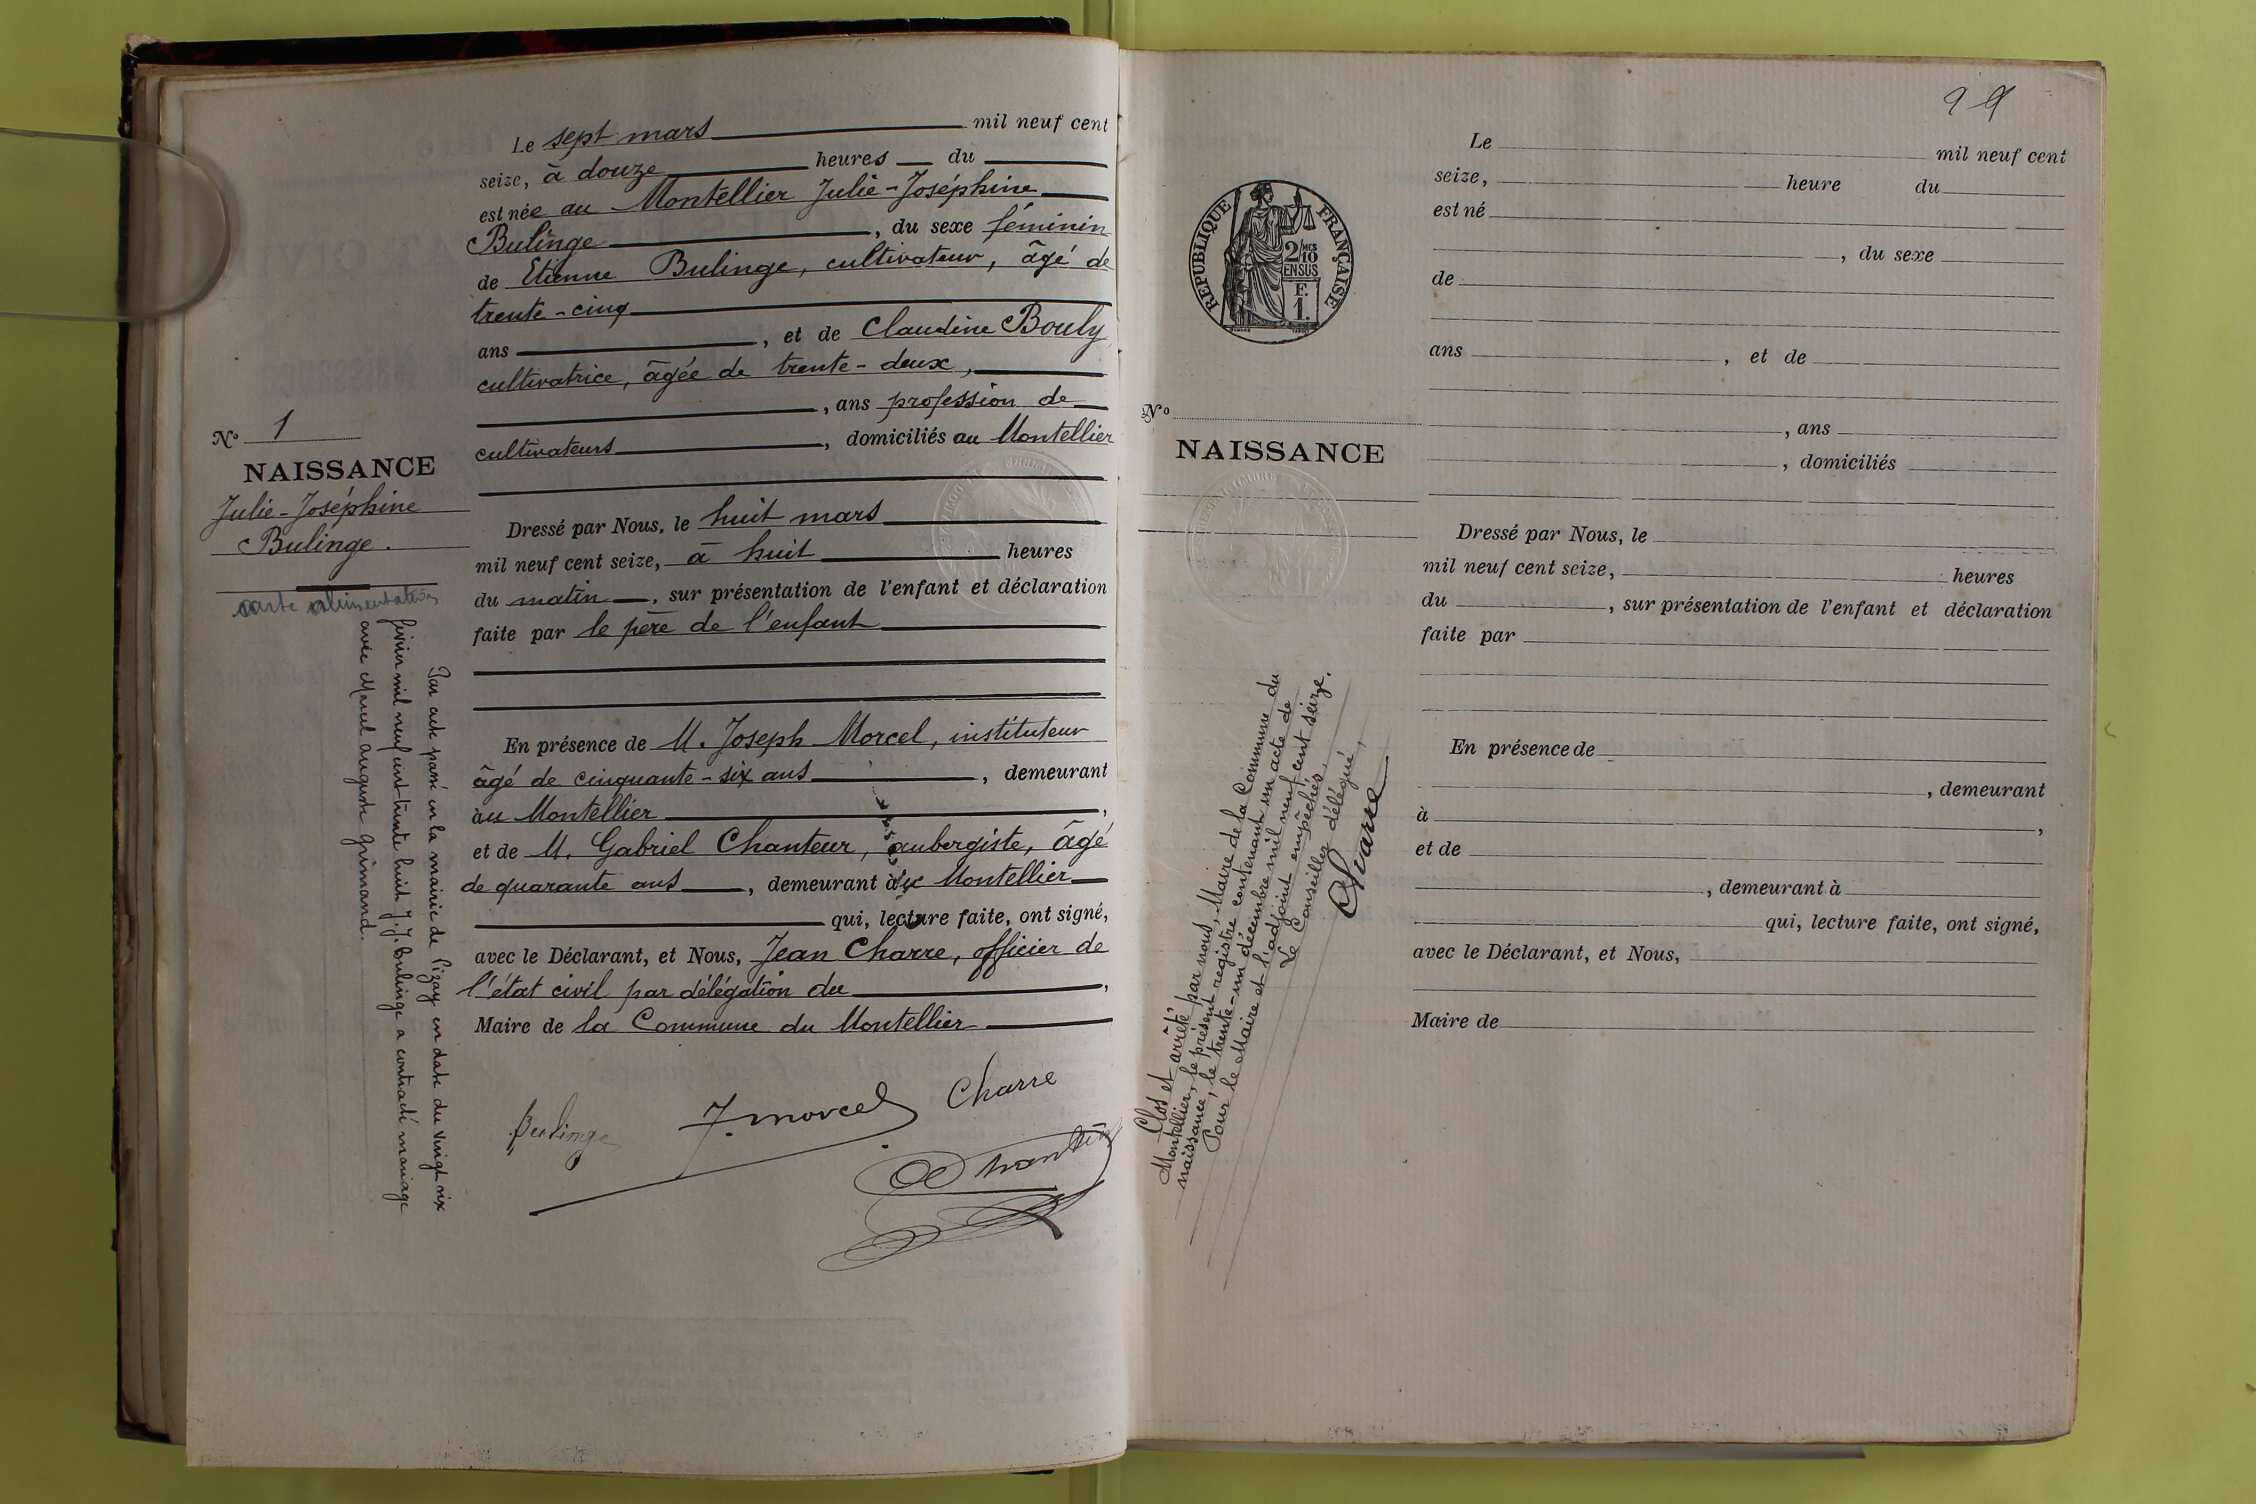 Le sept mars mil neuf cent
seize, à douze heures du
est née au Montellier Julie-Joséphine
Bulinge, du sexe féminin
de Etienne Bulinge, cultivateur, âgé de
trente-cinq
ans, et de Claudine Bouly
cultivatrice, âgée de trente-deux,
, ans profession de
cultivateurs, domiciliés au Montellier
N° 1
NAISSANCE
Julie-Joséphine
Bulinge.
carte alimentation
Dressé par Nous, le huit mars
mil neuf cent seize, à huit heures
du matin, sur présentation de l'enfant et déclaration
faite par le père de l'enfant
En présence de M. Joseph Morcel, instituteur
âgé de cinquante-six ans, demeurant
au Montellier,
et de M. Gabriel Chanteur, aubergiste, âgé
de quarante ans, demeurant à Montellier
qui, lecture faite, ont signé,
avec le Déclarant, et Nous, Jean Charre, officier de
l'état civil par délégation du,
Maire de la Commune du Montellier
Bulinge J. Morcel Charre
Par acte passé en la mairie de Pizay en date du vingt six
février mil neuf cent trente huit J. J. Bulinge a contracté mariage
avec Marcel Auguste Guimand.
99
Le mil neuf cent
seize, heure du
est né
, du sexe
de
ans, et de
, ans
, domiciliés
REPUBLIQUE FRANÇAISE
2/10 MES
EN SUS
F.
1.
N°
NAISSANCE
Dressé par Nous, le
mil neuf cent seize, heures
du, sur présentation de l'enfant et déclaration
faite par
En présence de
, demeurant
à,
et de
, demeurant à
qui, lecture faite, ont signé,
avec le Déclarant, et Nous,
Maire de
Clos et arrêté par nous, Maire de la Commune du
Montellier, le présent registre contenant un acte de
naissance, le trente-un décembre mil neuf cent seize.
Pour le Maire et l'adjoint empêchés,
Le Conseiller délégué,
Charre